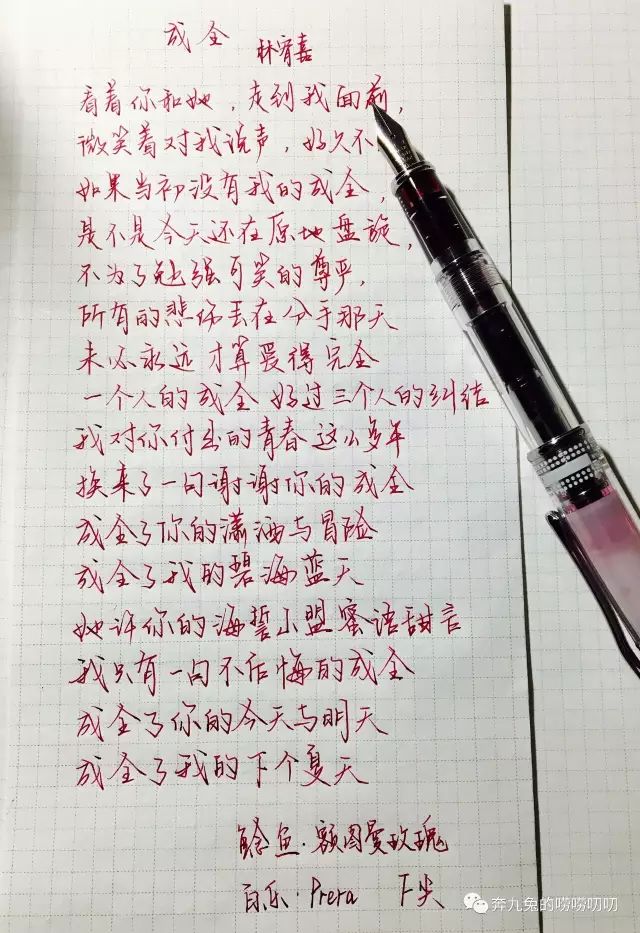 成全
林宥嘉
看着你和她，走到我面前，
微笑着对我说声，好久不
如果当初没有我的成全，
是不是今天还在原地盘旋，
不为了勉强可笑的尊严，
所有的悲伤丢在分手那天
未必永远才算爱得完全
一个人的成全 好过三个人的纠结
我对你付出的青春这么多年
换来了一句谢谢你的成全
成全了你的潇洒与冒险
成全了我的碧海蓝天
她许你的海誓山盟蜜语甜言
我只有一句不后悔的成全
成全了你的今天与明天
成全了我的下个夏天
鲶鱼·额图曼玫瑰
百乐·Prera F尖
奔九兔的唠唠叨叨